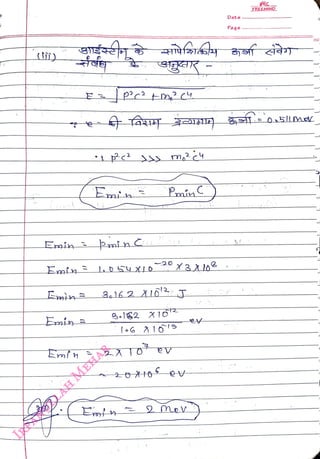 Date
Page
(iii) आइंस्टीन के सापेक्षिकीय ऊर्जा संवेग
संबंध के अनुसार -
E = √p²c² + m₀²c⁴
∵ e⁻ की विराम द्रव्यमान ऊर्जा = 0.511 MeV
∴ p²c² >>> m₀²c⁴
Emin = Pmin C
Emin = pmin C
Emin = 1.054 X 10⁻²⁰ X 3 X 10⁸
Emin = 3.162 X 10⁻¹² J
Emin = 3.162 X 10⁻¹² / 1.6 X 10⁻¹⁹ eV
Emin = 2 X 10⁷ eV
~ 20 X 10⁶ eV
Emin = 2 MeV